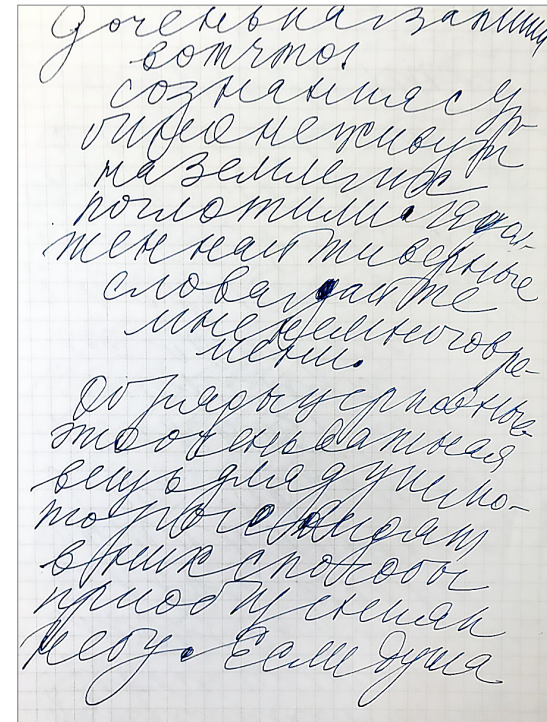 доченьказапиши
вотчто:
сознаниясу-
бидонеживут
наземлеих
поглотили.Ядол-
женнайтиверные
словадайте
мненемноговре-
мени.
Обрядыцерковные
этооченьважная
вещьдлядушко-
торыеожидают
внихспособы
приобщенияк
небу.Еслидуша